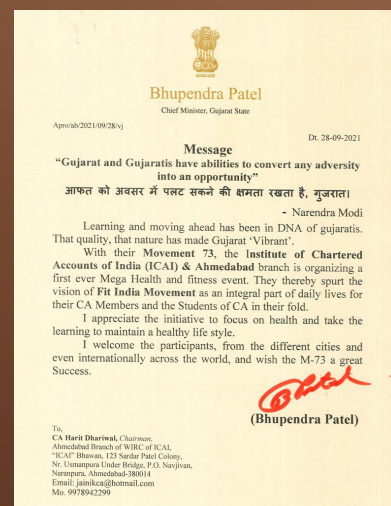 Bhupendra Patel
Chief Minister, Gujarat State
Apro/ab/2021/09/28/vj
Dt. 28-09-2021
Message
“Gujarat and Gujaratis have abilities to convert any adversity
into an opportunity”
आफत को अवसर में पलट सकने की क्षमता रखता है, गुजरात।
- Narendra Modi
Learning and moving ahead has been in DNA of gujaratis.
That quality, that nature has made Gujarat ‘Vibrant’.
With their Movement 73, the Institute of Chartered
Accounts of India (ICAI) & Ahmedabad branch is organizing a
first ever Mega Health and fitness event. They thereby spurt the
vision of Fit India Movement as an integral part of daily lives for
their CA Members and the Students of CA in their fold.
I appreciate the initiative to focus on health and take the
learning to maintain a healthy life style.
I welcome the participants, from the different cities and
even internationally across the world, and wish the M-73 a great
Success.
(Bhupendra Patel)
To,
CA Harit Dhariwal, Chairman,
Ahmedabad Branch of WIRC of ICAI,
“ICAI” Bhawan, 123 Sardar Patel Colony,
Nr. Usmanpura Under Bridge, P.O. Navjivan,
Naranpura, Ahmedabad-380014
Email: jainikca@hotmail.com
Mo. 9978942299